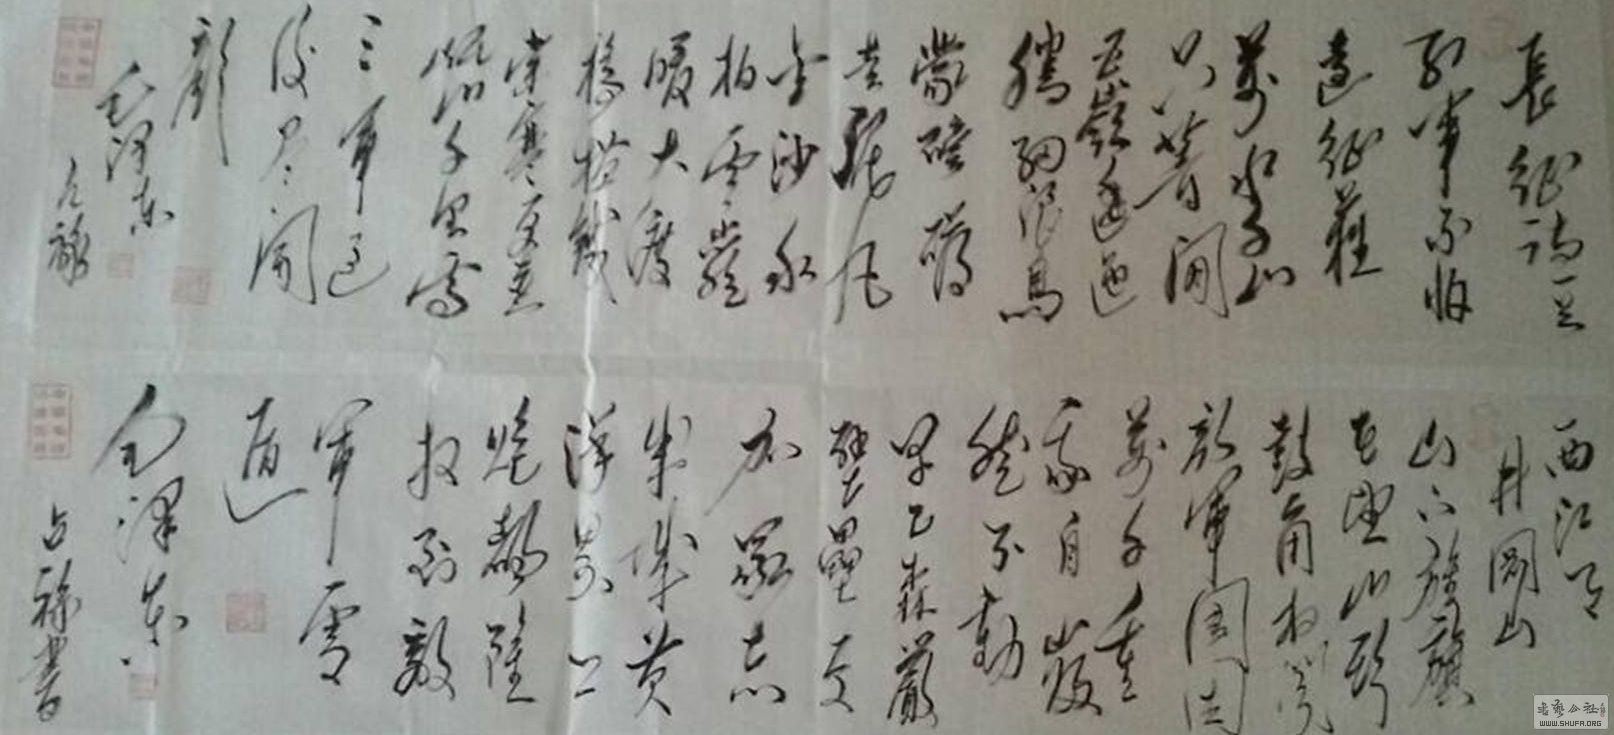 長征詩一首
红軍不怕
遠征難
萬水千山
只等閒
五嶺逶迤
騰細浪烏
蒙磅礴
走泥丸
金沙水
拍雲崖
暖大渡
橋橫鐵
索寒更喜
岷山千里雪
三軍過
後尽開
顏
毛澤东
占禄
西江月
井岡山
山下旌旗
在望山頭
鼓角相聞
敵軍圍困
萬千重
我自巋
然不動
早已森嚴
壁壘更
加眾志
成城黄
洋界上
炮聲隆
报到敵
軍宵
遁
毛澤东
占禄書
WWW.SHUFA.ORG